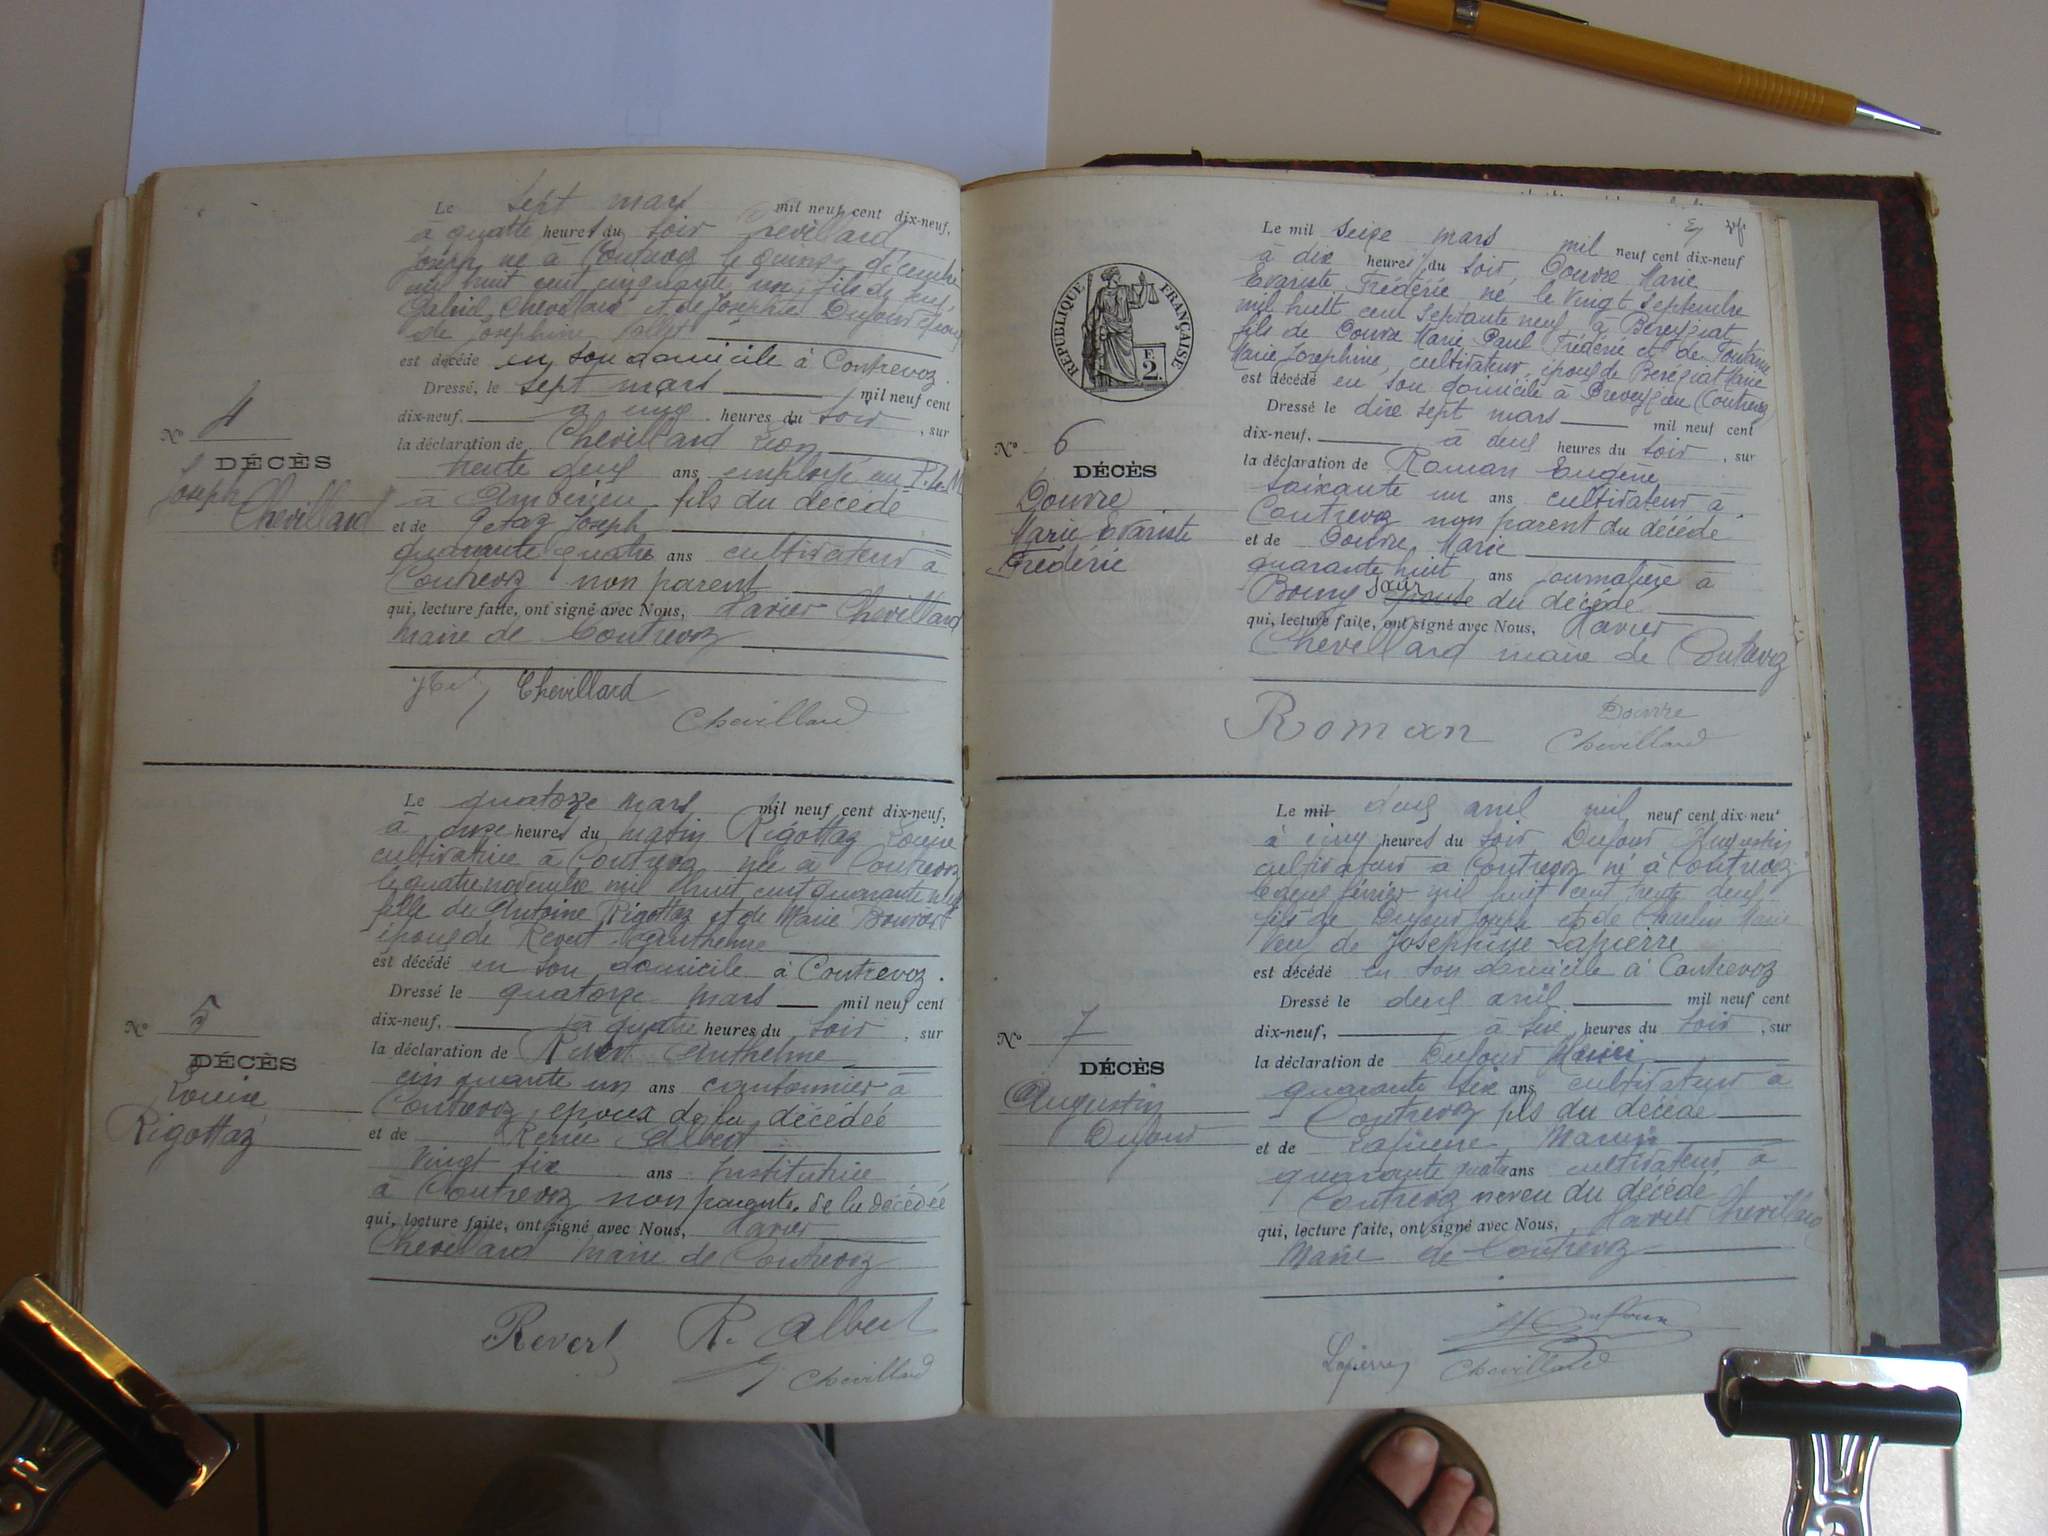 Le sept mars mil neuf cent dix-neuf,
à quatre heures du soir Chevillard
Joseph né à Contrevoz le quinze décembre
mil huit cent cinquante un, fils de feu
Gabriel Chevillard et de Josephte Dufour époux
de Josephine
est décédé en son domicile à Contrevoz.
Dressé, le sept mars mil neuf cent
dix-neuf, à cinq heures du soir, sur
la déclaration de Chevillard Léon
trente deux ans employé au P.L.M
à Ambérieu fils du décédé
et de Joseph
quarante quatre ans cultivateur à
Contrevoz non parent
qui, lecture faite, ont signé avec Nous, Xavier Chevillard
maire de Contrevoz
Chevillard
Chevillard
N° 4
DÉCÈS
Joseph
Chevillard
Le quatorze mars mil neuf cent dix-neuf,
à onze heures du matin Rigottaz Louise
cultivatrice à Contrevoz née à Contrevoz
le quatre novembre mil huit cent quarante neuf
fille de Antoine Rigottaz et de Marie
épouse de Revert Anthelme
est décédé en son domicile à Contrevoz.
Dressé le quatorze mars mil neuf cent
dix-neuf, à quatre heures du soir, sur
la déclaration de Revert Anthelme
cinquante un ans cantonnier à
Contrevoz, époux de la décédée
et de Renée Albert
vingt six ans institutrice
à Contrevoz non parente de la décédée
qui, lecture faite, ont signé avec Nous, Xavier
Chevillard maire de Contrevoz
Revert R. Albert
Chevillard
N° 5
DÉCÈS
Louise
Rigottaz
RÉPUBLIQUE FRANÇAISE
F.
2.
Le mil seize mars mil neuf cent dix-neuf
à dix heures du soir, Douvre Marie
Evariste Frédéric né le vingt septembre
mil huit cent septante neuf à Béreyziat
fils de Douvre Marie Paul Frédéric et de Fontaine
Marie Josephine, cultivateur, époux de Bereziat Marie
est décédé en son domicile à Preveyzieu Contrevoz
Dressé le dix sept mars mil neuf cent
dix-neuf, à deux heures du soir, sur
la déclaration de Roman Eugène
soixante un ans cultivateur à
Contrevoz non parent du décédé
et de Douvre Marie
quarante huit ans journalière à
Bourg soeur épouse du décédé
qui, lecture faite, ont signé avec Nous, Xavier
Chevillard maire de Contrevoz
Roman Douvre
Chevillard
N° 6
DÉCÈS
Douvre
Marie Evariste
Frédéric
Le mil deux avril mil neuf cent dix-neuf
à cinq heures du soir Dufour Augustin
cultivateur à Contrevoz né à Contrevoz
le deux février mil huit cent trente deux
fils de Dufour Joseph et de Marie
veuf de Josephine Lapierre
est décédé en son domicile à Contrevoz
Dressé le deux avril mil neuf cent
dix-neuf, à six heures du soir, sur
la déclaration de Dufour
quarante six ans cultivateur à
Contrevoz fils du décédé
et de Lapierre Marius
quarante quatre ans cultivateur à
Contrevoz neveu du décédé
qui, lecture faite, ont signé avec Nous, Xavier Chevillard
Maire de Contrevoz
Lapierre Dufour
Chevillard
N° 7
DÉCÈS
Augustin
Dufour